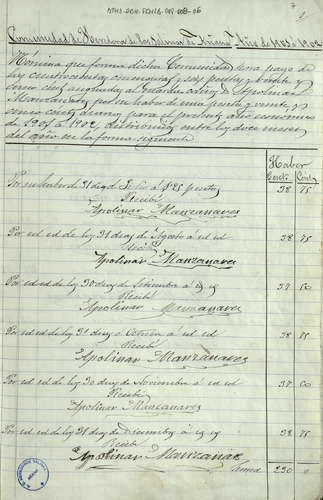 ATHA-DOH-FCM16-018-008-06
7
Comunidad de Herederos de las Salinas de Añana Año de 1901 á 1902
Nómina que forma dicha Comunidad para pago de
las cuatrocientas cincuenta y seis pesetas y veinte y
cinco cents asignadas al Guarda D. Apolinar
Manzanares por su haber de una peseta y veinte y
cinco cents diarios para el presente año económico
de 1901 á 1902, distribuidas entre los doce meses
del año en la forma siguiente
Haber
Pesetas Cents
Por su haber de 31 dias de Julio á 1'25 pesetas 38 75
Recibí
Apolinar Manzanares
Por id id de los 31 dias de Agosto á id id 38 75
Recibí
Apolinar Manzanares
Por id id de los 30 dias de Setiembre á id id 37 50
Recibí
Apolinar Manzanares
Por id id de los 31 dias de Octubre á id id 38 75
Recibí
Apolinar Manzanares
Por id id de los 30 dias de Noviembre á id id 37 50
Recibí
Apolinar Manzanares
Por id id de los 31 dias de Diciembre á id id 38 75
Recibí
Apolinar Manzanares
Suma 230 "